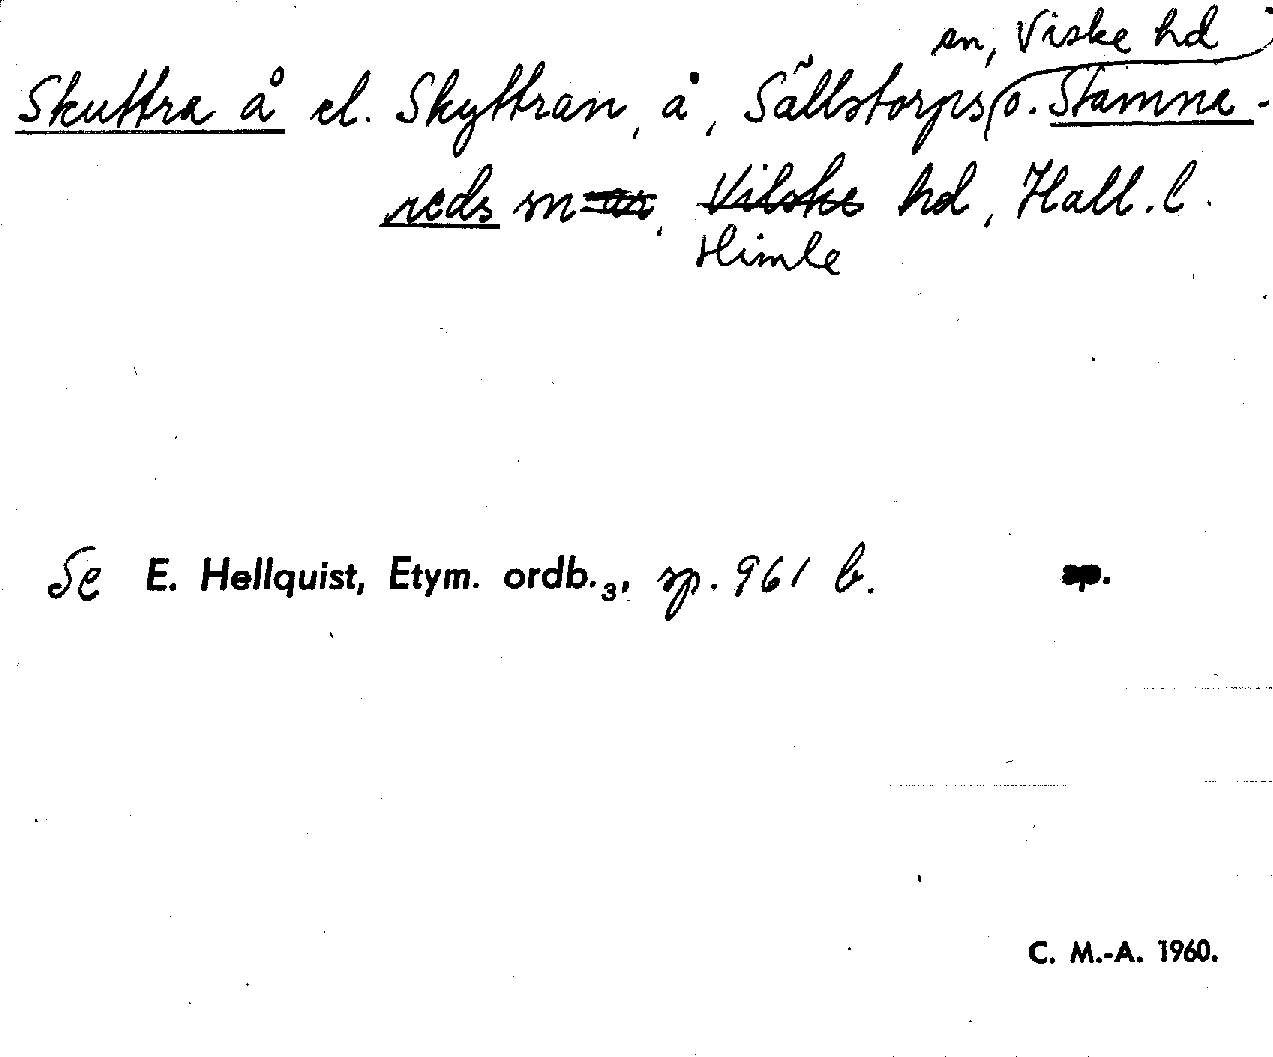 sn, Viske hd
Skuttra å el. Skyttran, å, Sällstorps o. Stamne-
reds sn, Vilske hd, Hall. l.
Himle
Se E. Hellquist, Etym. ordb.3, sp. 961 b. sp.
C. M.-A. 1960.